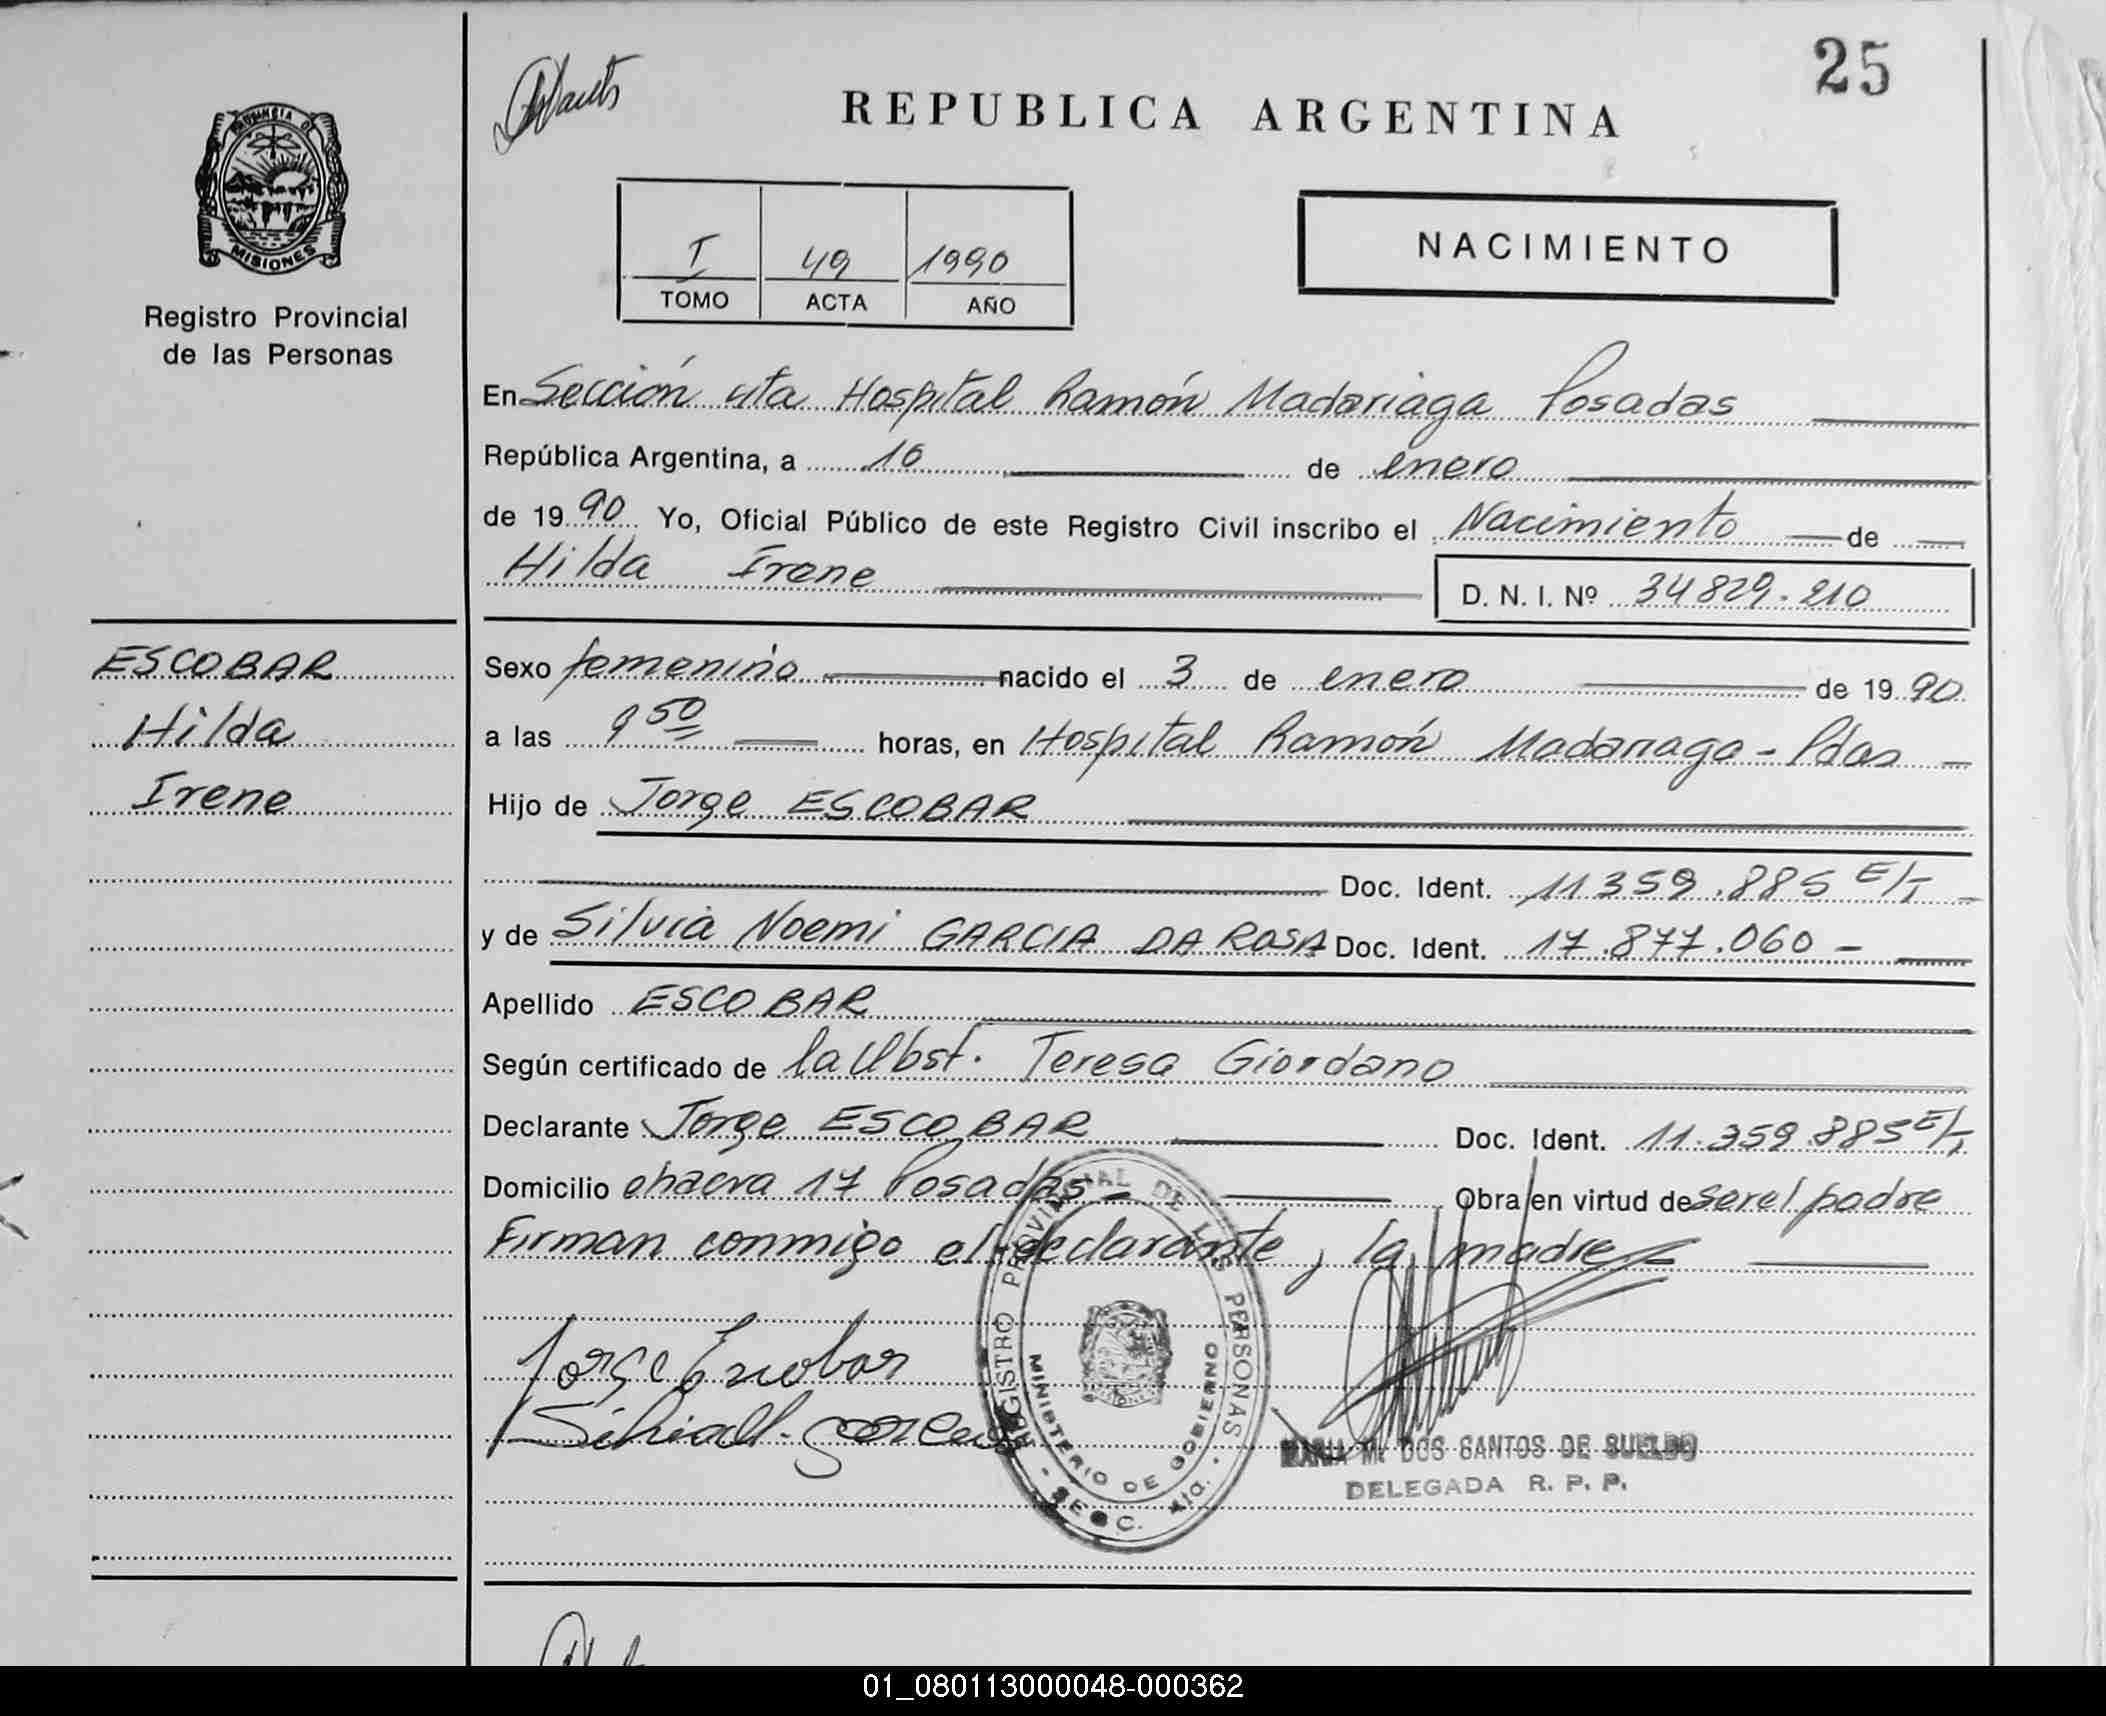 25
REPUBLICA ARGENTINA
PROVINCIA DE
MISIONES
Registro Provincial
de las Personas
I 49 1990
TOMO ACTA AÑO
NACIMIENTO
En Sección 4ta Hospital Ramón Madariaga Posadas
República Argentina, a 16 de enero
de 1990 Yo, Oficial Público de este Registro Civil inscribo el Nacimiento de
Hilda Irene
D. N. I. Nº 34829.210
ESCOBAR
Hilda
Irene
Sexo femenino nacido el 3 de enero de 1990
a las 9 50 horas, en Hospital Ramón Madariaga - Pdas
Hijo de Jorge ESCOBAR
Doc. Ident. 11.359.885 E/T
y de Silvia Noemi GARCIA DA ROSA Doc. Ident. 17.877.060 -
Apellido ESCOBAR
Según certificado de la Obst. Teresa Giordano
Declarante Jorge ESCOBAR Doc. Ident. 11.359.885 E/T
Domicilio chacra 17 Posadas - Obra en virtud de ser el padre
Firman conmigo el declarante, la madre
Jorge Escobar
Silvia N. Garcia
REGISTRO PROVINCIAL DE LAS PERSONAS
MINISTERIO DE GOBIERNO
SECC. 4ta.
MARIA M. DOS SANTOS DE SUELDO
DELEGADA R. P. P.
01_080113000048-000362